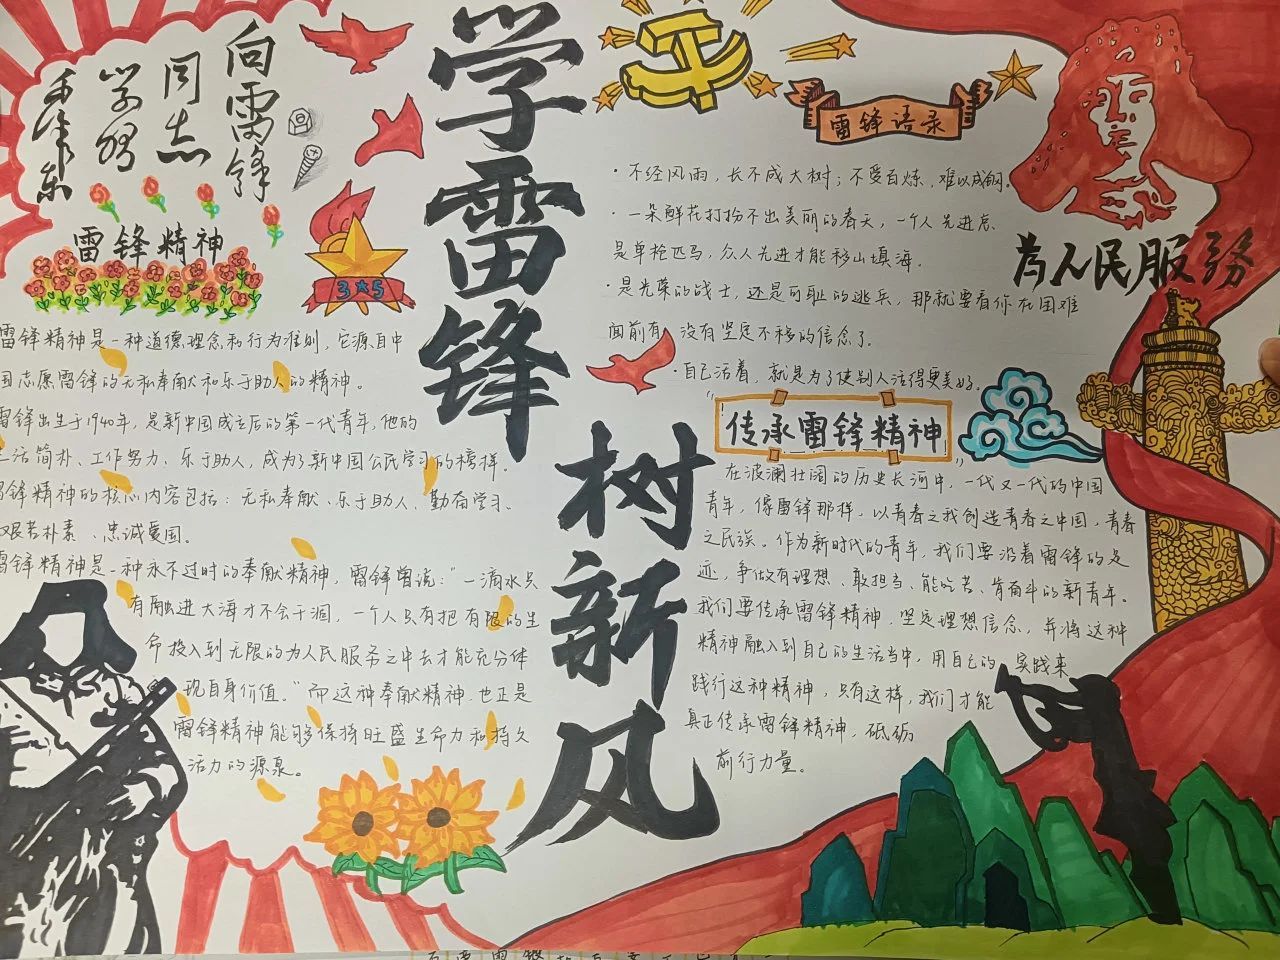 向雷锋
同志
学习
毛泽东
学雷锋
树新风
雷锋精神
3★5
雷锋精神是一种道德理念和行为准则，它源自中
国志愿雷锋的无私奉献和乐于助人的精神。
雷锋出生于1940年，是新中国成立后的第一代青年，他的
生活简朴、工作努力、乐于助人，成为了新中国公民学习的榜样。
雷锋精神的核心内容包括：无私奉献、乐于助人、勤奋学习、
艰苦朴素、忠诚爱国。
雷锋精神是一种永不过时的奉献精神，雷锋曾说："一滴水只
有融进大海才不会干涸，一个人只有把有限的生
命投入到无限的为人民服务之中去才能充分体
现自身价值。"而这种奉献精神也正是
雷锋精神能够保持旺盛生命力和持久
活力的源泉。
雷锋语录
·不经风雨，长不成大树；不受百炼，难以成钢。
·一朵鲜花打扮不出美丽的春天，一个人先进总
是单枪匹马，众人先进才能移山填海。
·是光荣的战士，还是可耻的逃兵，那就要看你在困难
面前有 没有坚定不移的信念了。
·自己活着，就是为了使别人活得更美好。
为人民服务
"传承雷锋精神"
在波澜壮阔的历史长河中，一代又一代的中国
青年，像雷锋那样，以青春之我创造青春之中国，青春
之民族。作为新时代的青年，我们要沿着雷锋的足
迹，争做有理想、敢担当、能吃苦、肯奋斗的新青年。
我们要传承雷锋精神，坚定理想信念，并将这种
精神融入到自己的生活当中，用自己的 实践来
践行这种精神，只有这样，我们才能
真正传承雷锋精神，砥砺
前行力量。